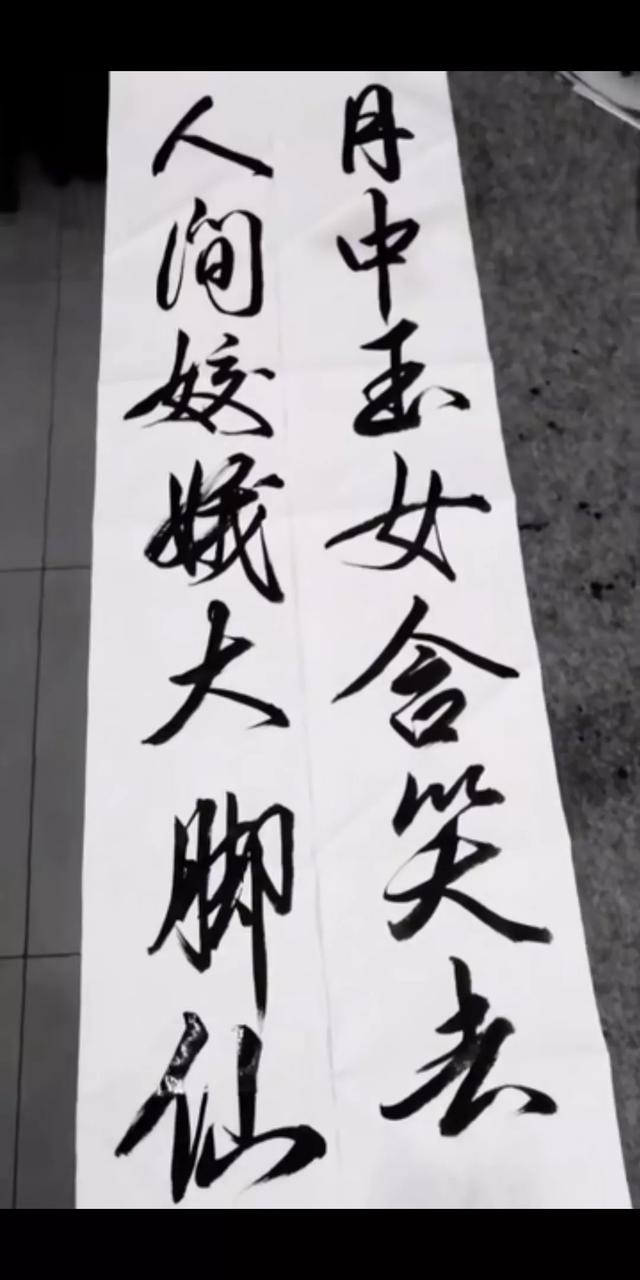 月中玉女含笑去
人间姣娥大脚仙